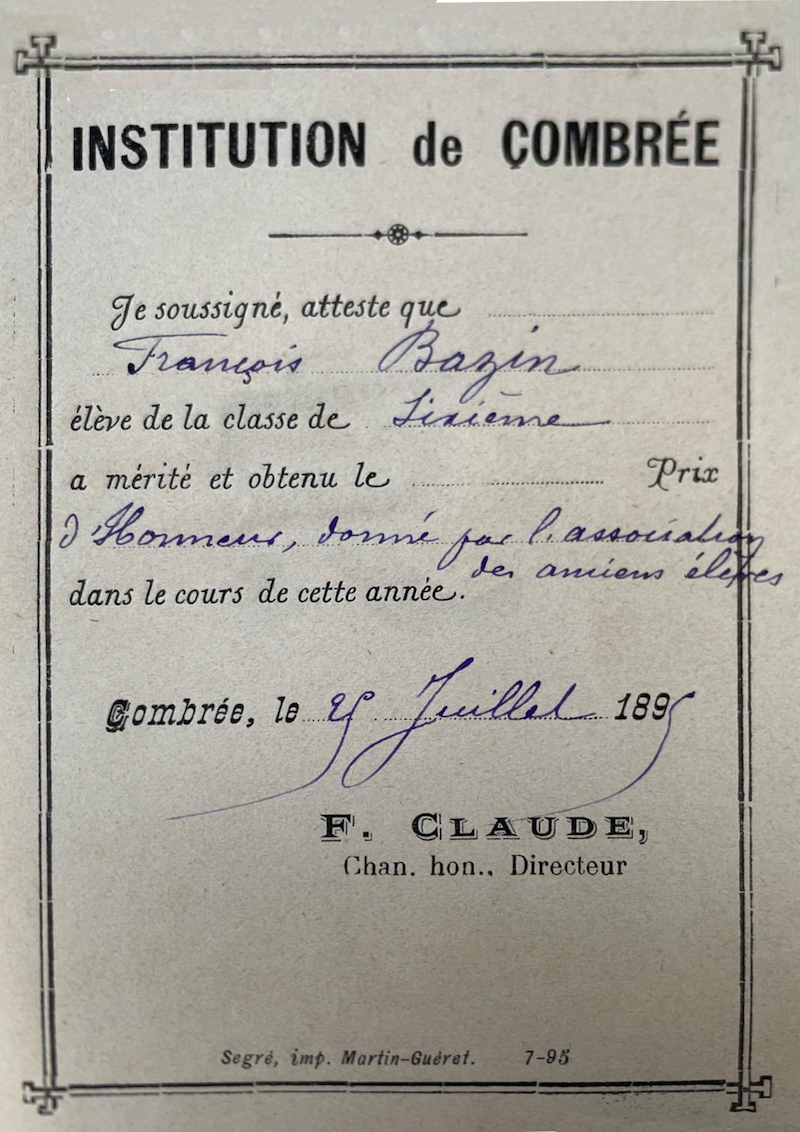 INSTITUTION de COMBRÉE
Je soussigné, atteste que
François Bazin
élève de la classe de Sixième
a mérité et obtenu le Prix
d'Honneur, donné par l'association
des anciens élèves
dans le cours de cette année.
Combrée, le 25 Juillet 1895
F. CLAUDE,
Chan. hon., Directeur
Segré, imp. Martin-Guéret. 7-95